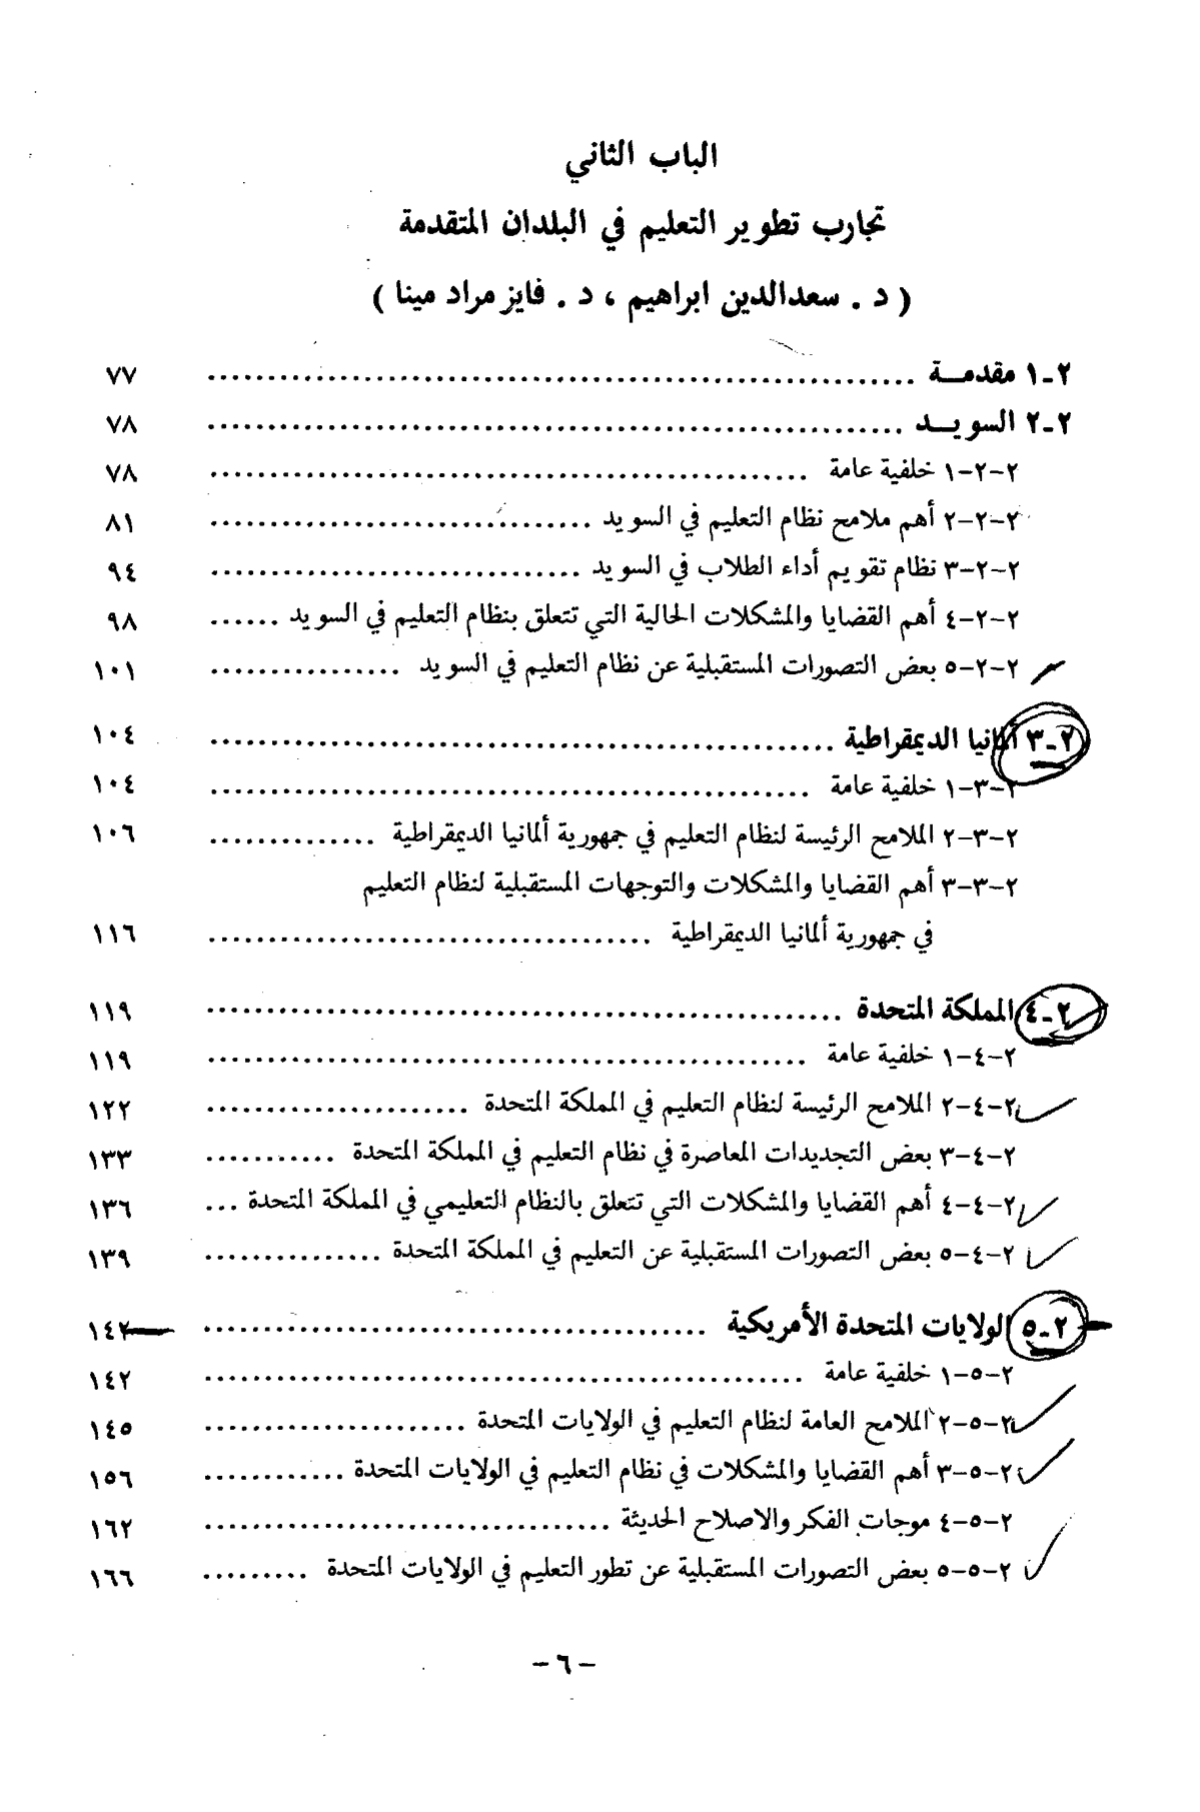 الباب الثاني
تجارب تطوير التعليم في البلدان المتقدمة
( د . سعدالدين ابراهيم ، د . فايز مراد مينا )
٢-١ مقدمـــة ........................................ ٧٧
٢-٢ السويـــد ........................................ ٧٨
٢-٢-١ خلفية عامة ........................................ ٧٨
٢-٢-٢ أهم ملامح نظام التعليم في السويد ........................................ ٨١
٢-٢-٣ نظام تقويم أداء الطلاب في السويد ........................................ ٩٤
٢-٢-٤ أهم القضايا والمشكلات الحالية التي تتعلق بنظام التعليم في السويد ...... ٩٨
٢-٢-٥ بعض التصورات المستقبلية عن نظام التعليم في السويد ................ ١٠١
٢-٣ ألمانيا الديمقراطية ........................................ ١٠٤
٢-٣-١ خلفية عامة ........................................ ١٠٤
٢-٣-٢ الملامح الرئيسة لنظام التعليم في جمهورية ألمانيا الديمقراطية .............. ١٠٦
٢-٣-٣ أهم القضايا والمشكلات والتوجهات المستقبلية لنظام التعليم
في جمهورية ألمانيا الديمقراطية ..................................... ١١٦
٢-٤ المملكة المتحدة ........................................ ١١٩
٢-٤-١ خلفية عامة ........................................ ١١٩
٢-٤-٢ الملامح الرئيسة لنظام التعليم في المملكة المتحدة ...................... ١٢٢
٢-٤-٣ بعض التجديدات المعاصرة في نظام التعليم في المملكة المتحدة ........... ١٣٣
٢-٤-٤ أهم القضايا والمشكلات التي تتعلق بالنظام التعليمي في المملكة المتحدة ... ١٣٦
٢-٤-٥ بعض التصورات المستقبلية عن التعليم في المملكة المتحدة ............... ١٣٩
٢-٥ الولايات المتحدة الأمريكية ........................................ ١٤٢
٢-٥-١ خلفية عامة ........................................ ١٤٢
٢-٥-٢ الملامح العامة لنظام التعليم في الولايات المتحدة ...................... ١٤٥
٢-٥-٣ أهم القضايا والمشكلات في نظام التعليم في الولايات المتحدة ............ ١٥٦
٢-٥-٤ موجات الفكر والاصلاح الحديثة .................................. ١٦٢
٢-٥-٥ بعض التصورات المستقبلية عن تطور التعليم في الولايات المتحدة ......... ١٦٦
- ٦ -